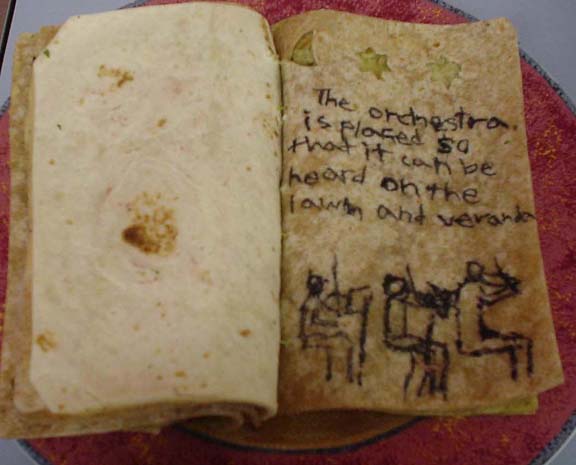 The orchestra
is placed so
that it can be
heard on the
lawn and veranda